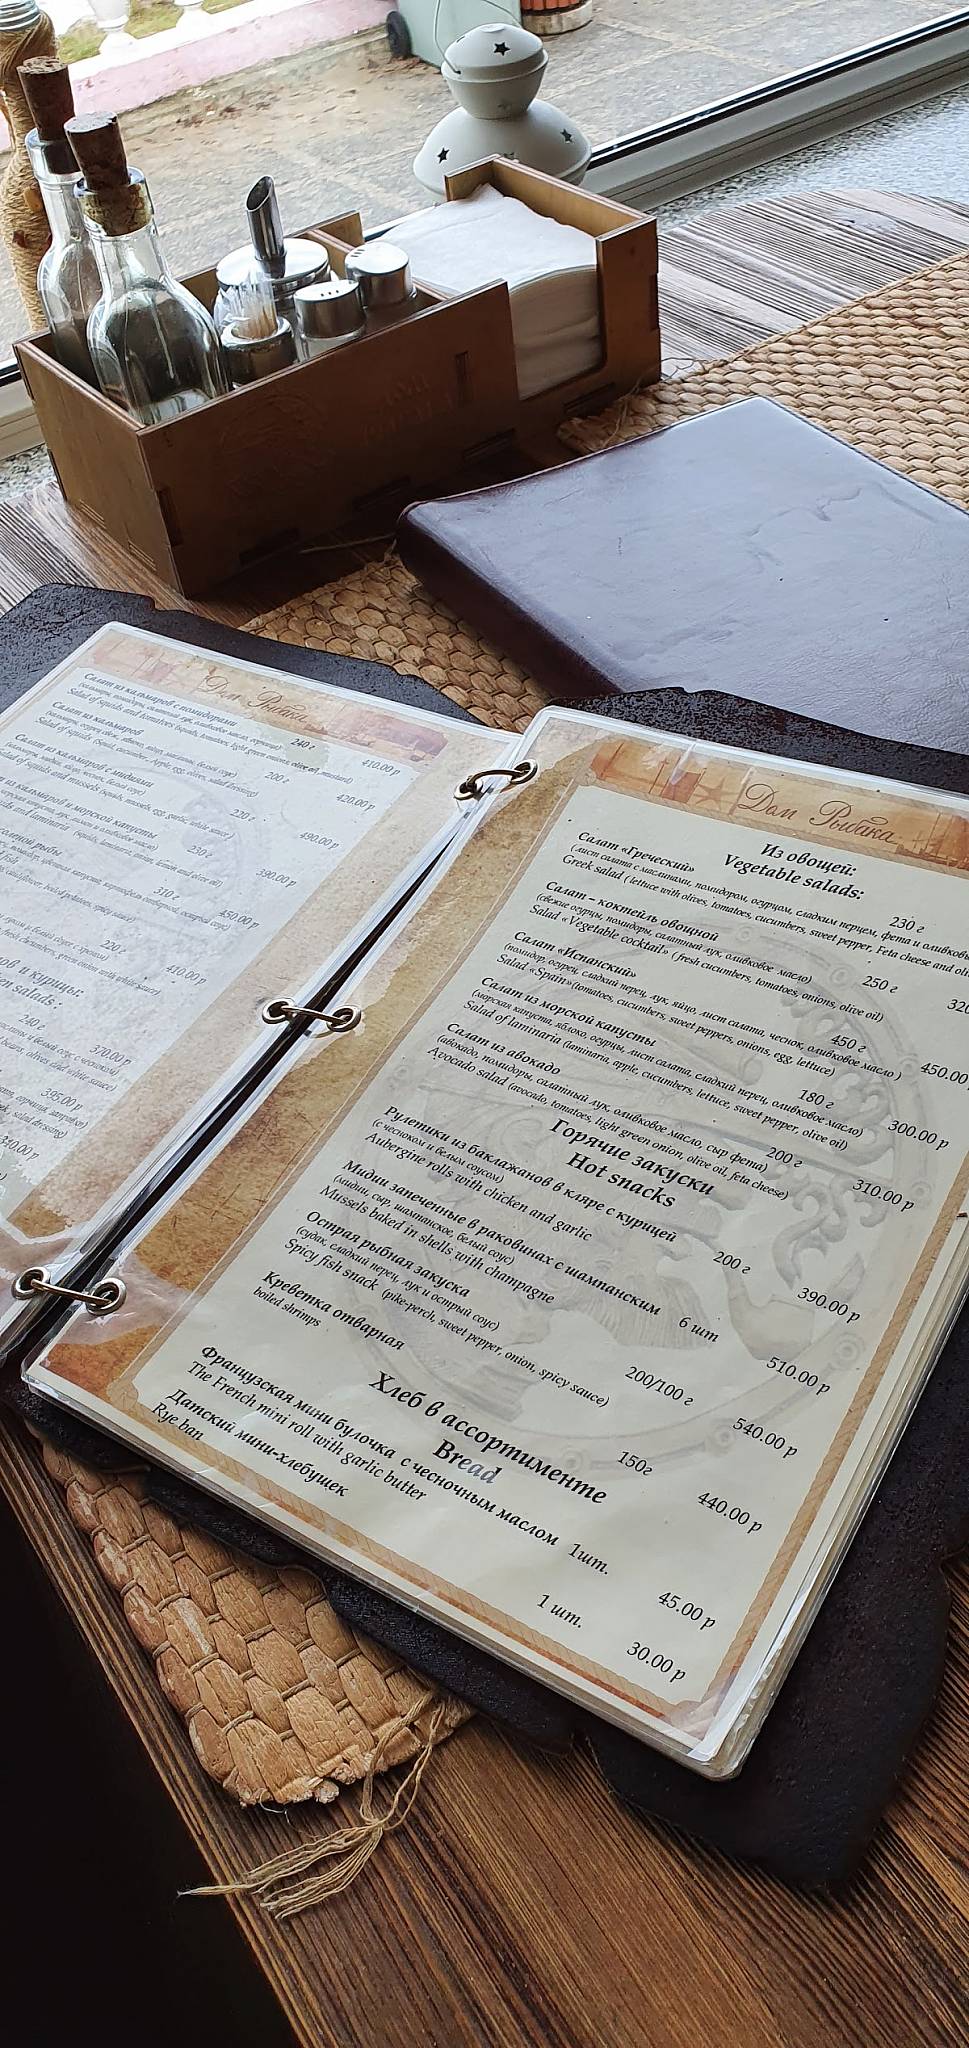 Дом Рыбака
Салат из кальмаров с помидорами
240 г
410.00 р
Salad of squids and tomatoes (squids, tomatoes, light green onions, olive oil, mustard)
Салат из кальмаров
200 г
420.00 р
Salad of squids (squid, cucumber, Apple, egg, olives, salad dressing)
Салат из кальмаров с мидиями
220 г
490.00 р
Salad of squids and mussels (squids, mussels, egg, garlic, white sauce)
из кальмаров и морской капусты
230 г
390.00 р
and laminaria (squids, laminaria, onion, lemon and olive oil)
соленой рыбы
310 г
450.00 р
220 г
410.00 р
fresh cucumbers, green onion with white sauce)
ов и курицы:
en salads:
240 г
370.00 р
beans, olives and white sauce)
395.00 р
salad dressing)
350.00 р
Дом Рыбака
Из овощей:
Vegetable salads:
Салат «Греческий»
230 г
(лист салата с маслинами, помидором, огурцом, сладким перцем, фета и оливковым
Greek salad (lettuce with olives, tomatoes, cucumbers, sweet pepper, Feta cheese and oli
Салат – коктейль овощной
250 г
320
(свежие огурцы, помидоры, салатный лук, оливковое масло)
Salad «Vegetable cocktail» (fresh cucumbers, tomatoes, onions, olive oil)
Салат «Испанский»
450 г
450.00 р
(помидор, огурец, сладкий перец, лук, яйцо, лист салата, чеснок, оливковое масло)
Salad «Spain» (tomatoes, cucumbers, sweet peppers, onions, egg, lettuce)
Салат из морской капусты
180 г
300.00 р
(морская капуста, яблоко, огурцы, лист салата, сладкий перец, оливковое масло)
Salad of laminaria (laminaria, apple, cucumbers, lettuce, sweet pepper, olive oil)
Салат из авокадо
200 г
310.00 р
(авокадо, помидоры, салатный лук, оливковое масло, сыр фета)
Avocado salad (avocado, tomatoes, light green onion, olive oil, feta cheese)
Горячие закуски
Hot snacks
Рулетики из баклажанов в кляре с курицей
200 г
390.00 р
(с чесноком и белым соусом)
Aubergine rolls with chicken and garlic
Мидии запеченные в раковинах с шампанским
6 шт
510.00 р
(мидии, сыр, шампанское, белый соус)
Mussels baked in shells with champagne
Острая рыбная закуска
200/100 г
540.00 р
(судак, сладкий перец, лук и острый соус)
Spicy fish snack (pike-perch, sweet pepper, onion, spicy sauce)
Креветка отварная
150г
440.00 р
boiled shrimps
Хлеб в ассортименте
Bread
Французская мини булочка с чесночным маслом
1шт.
45.00 р
The French mini roll with garlic butter
Датский мини-хлебушек
1 шт.
30.00 р
Rye ban